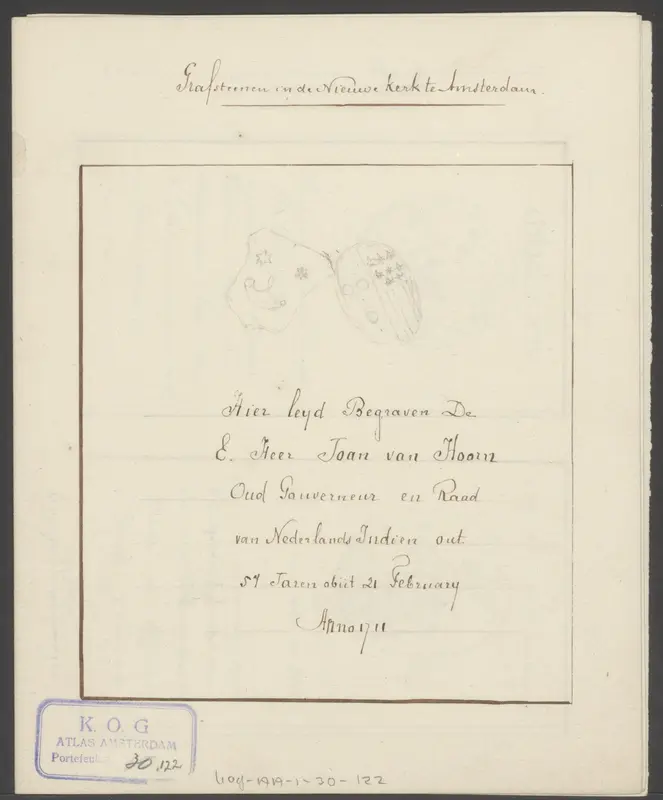 Grafsteenen in de Nieuwe Kerk te Amsterdam.
Hier leyd Begraven De
E. Heer Joan van Hoorn
Oud Gouverneur en Raad
van Nederlands Indien out
57 Jaren obiit 21 February
Anno 1711
K. O. G
ATLAS AMSTERDAM
30,122
kog-AA-1-30-122